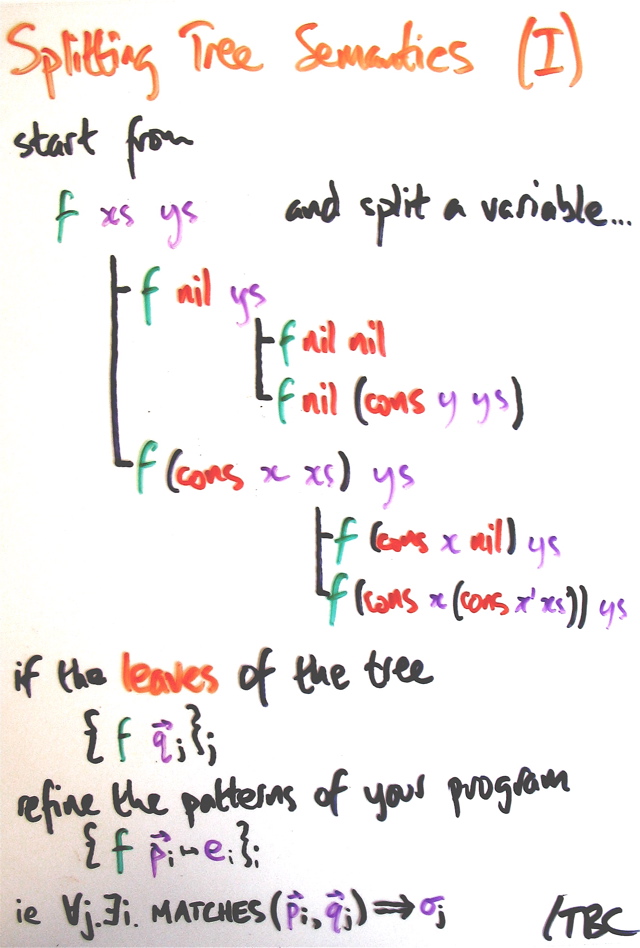 Splitting Tree Semantics (I)
start from
f xs ys and split a variable...
f nil ys
f nil nil
f nil (cons y ys)
f (cons x xs) ys
f (cons x nil) ys
f (cons x (cons x' xs)) ys
if the leaves of the tree
{ f q⃗ⱼ }ⱼ
refine the patterns of your program
{ f p⃗ᵢ ↦ eᵢ }ᵢ
ie ∀j.∃i. MATCHES(p⃗ᵢ, q⃗ⱼ) ⟹ σⱼ
/TBC